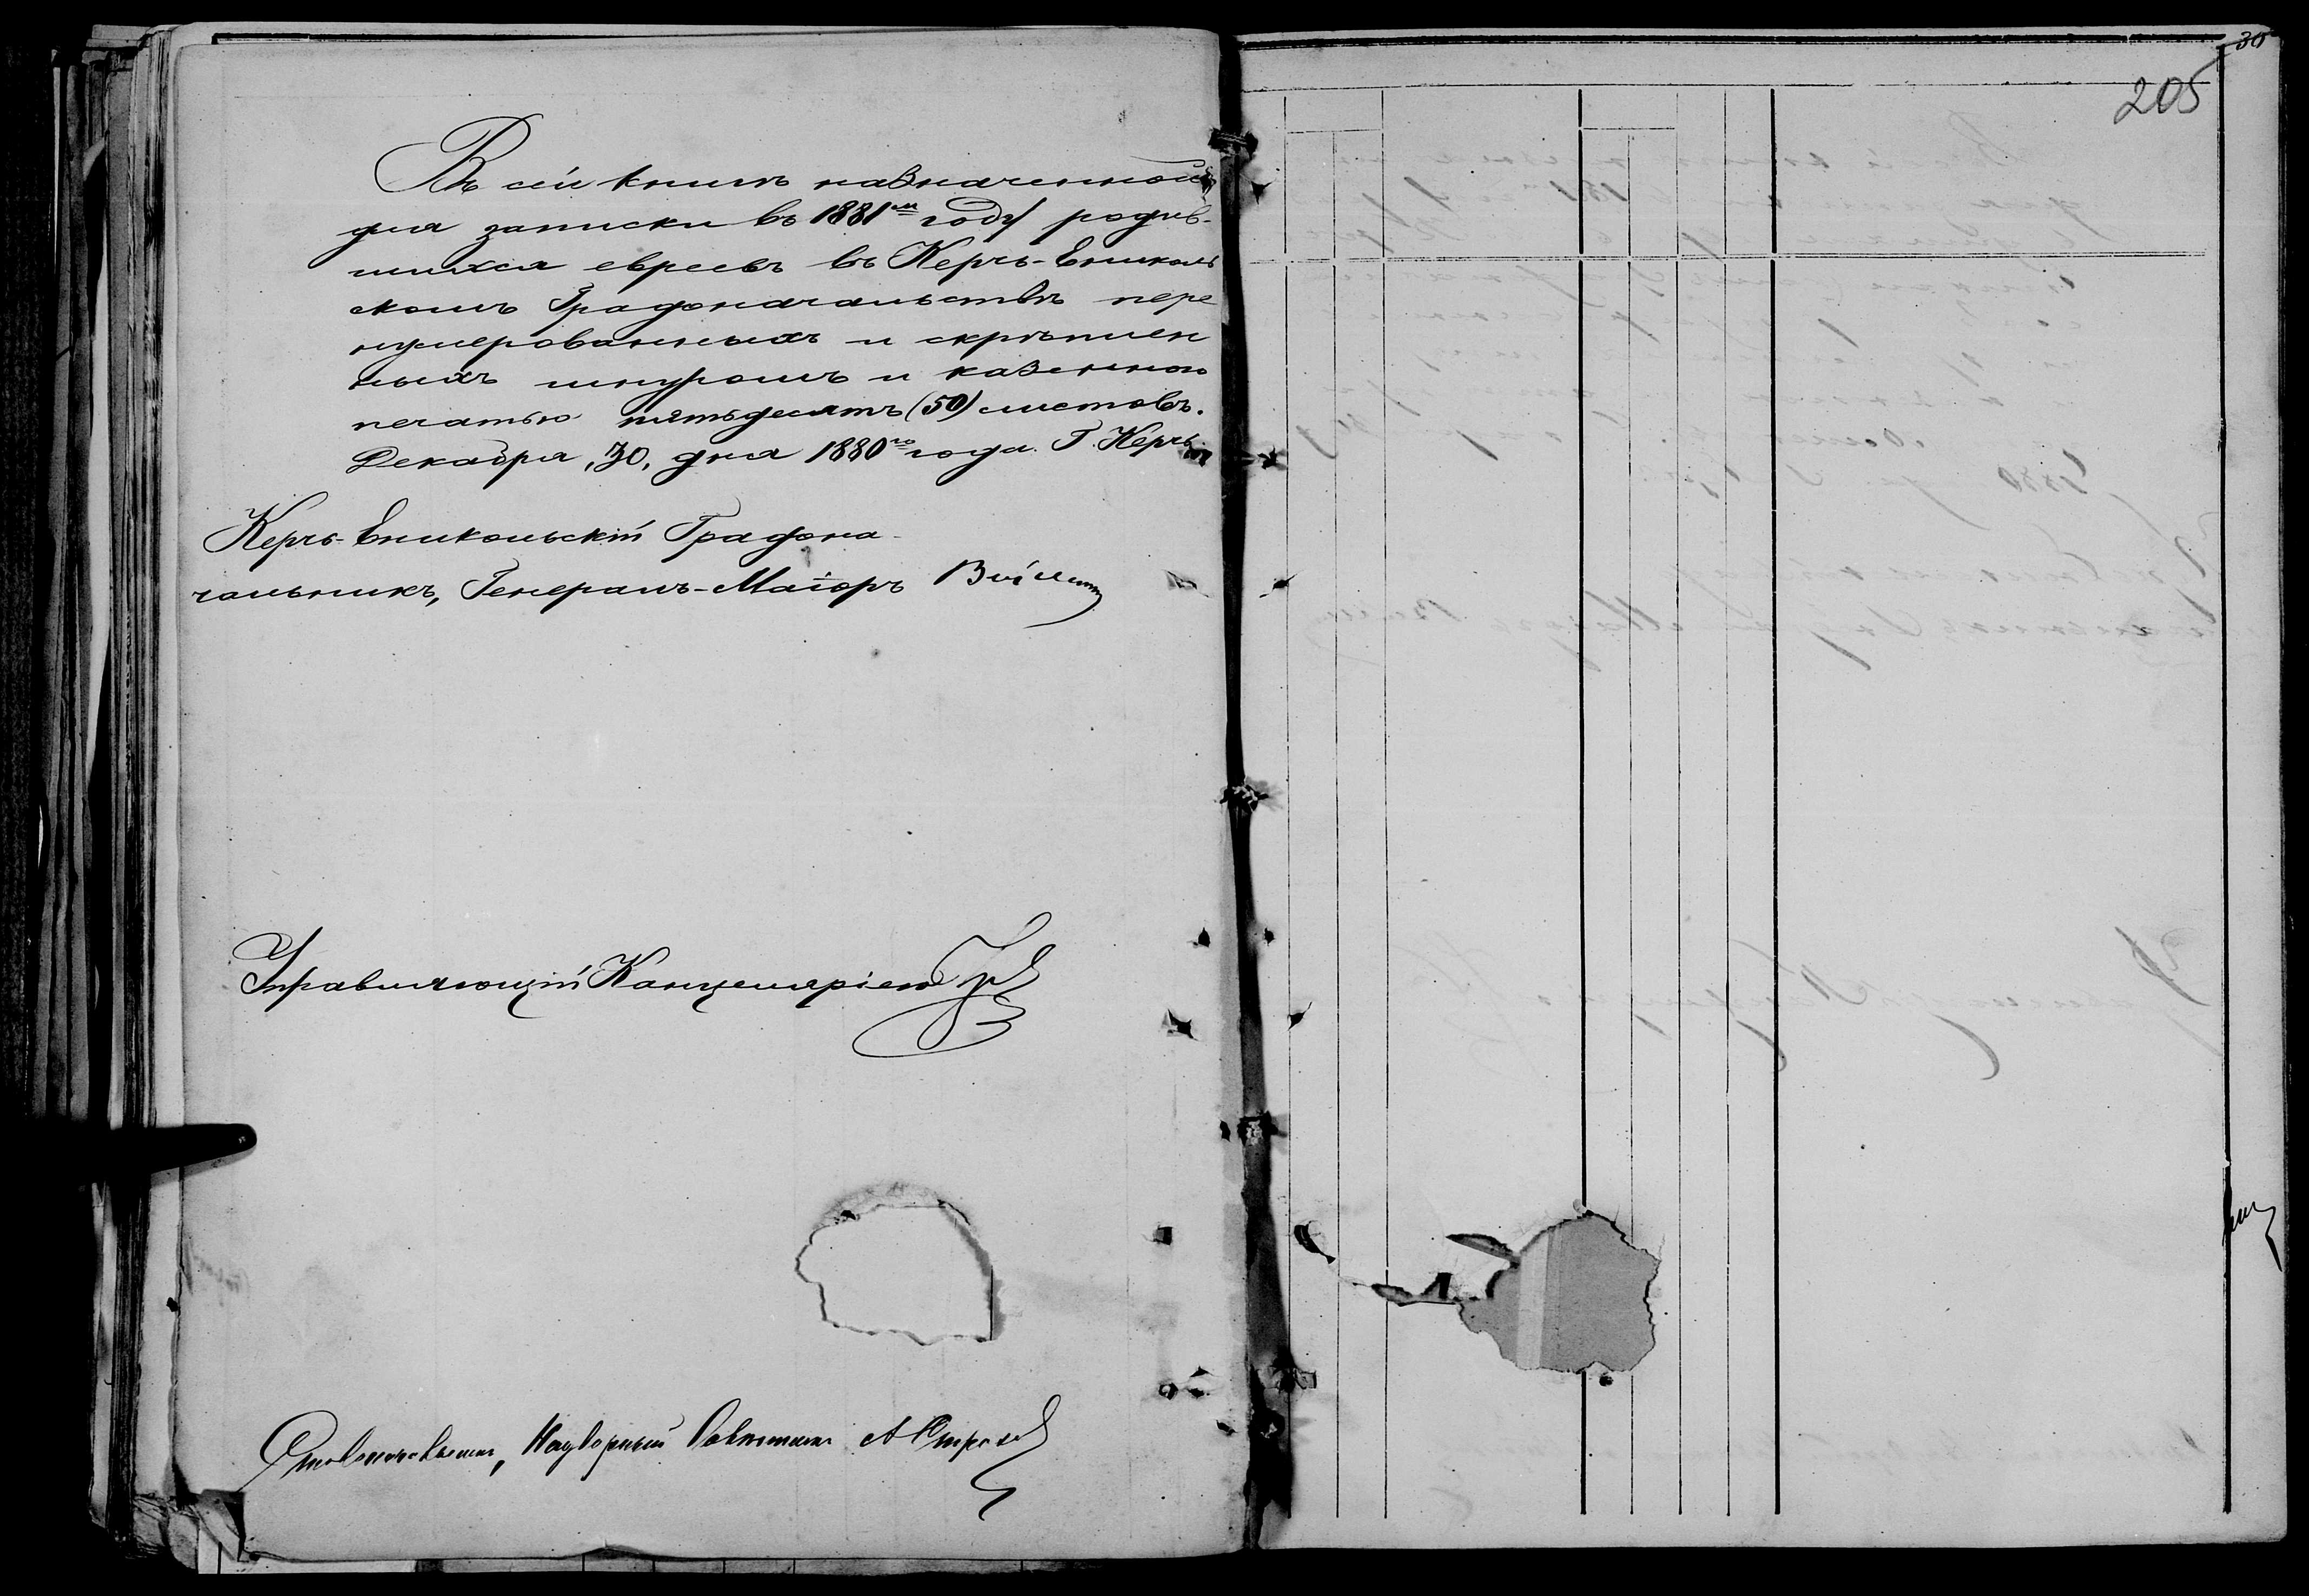 Въ сей книгѣ назначенной
для записки въ 1881ᵐ году родив-
шихся евреевъ въ Керчь-Ениколь
скомъ Градоначальствѣ пере
нумерованныхъ и скрѣплен
ныхъ шнуромъ и казенною
печатью пятьдесятъ (50) листовъ.
Декабря „30„ дня 1880го года. Г. Керчь.
Керчь-Еникольскій Градона-
чальникъ, Генералъ-Маіоръ
Управляющій Канцеляріею
Столоначальникъ, Надворный Совѣтникъ
205